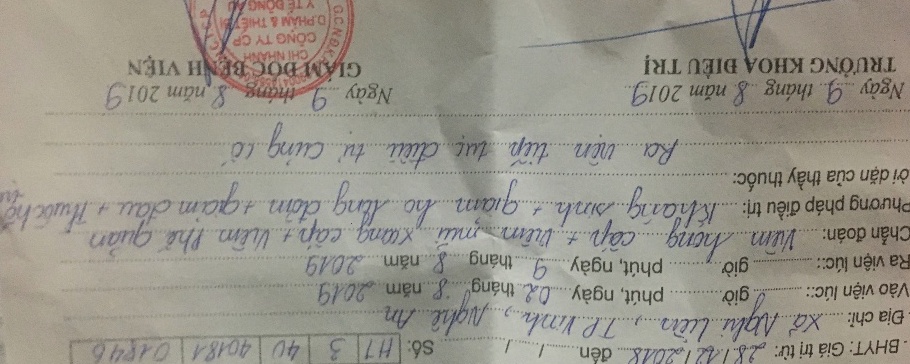 . BHYT: Giá trị từ: 28/12/2018 đến / / Số: HT 3 40 40181 01846
. Địa chỉ: Xã Nghi Liên, TP Vinh, Nghệ An
Vào viện lúc: giờ phút, ngày 02 tháng 8 năm 2019
Ra viện lúc: giờ phút, ngày 9 tháng 8 năm 2019
Chẩn đoán: Viêm họng cấp + Viêm mũi xoang cấp + Viêm phế quản
Phương pháp điều trị: Kháng sinh + giảm ho long đờm + giảm đau + thuốc hỗ
ời dặn của thầy thuốc:
Ra viện tiếp tục điều trị củng cố
Ngày 9 tháng 8 năm 2019 Ngày 9 tháng 8 năm 2019
TRƯỞNG KHOA ĐIỀU TRỊ GIÁM ĐỐC BỆNH VIỆN
CHI NHÁNH
CÔNG TY CP
D.PHẨM & THIẾT BỊ